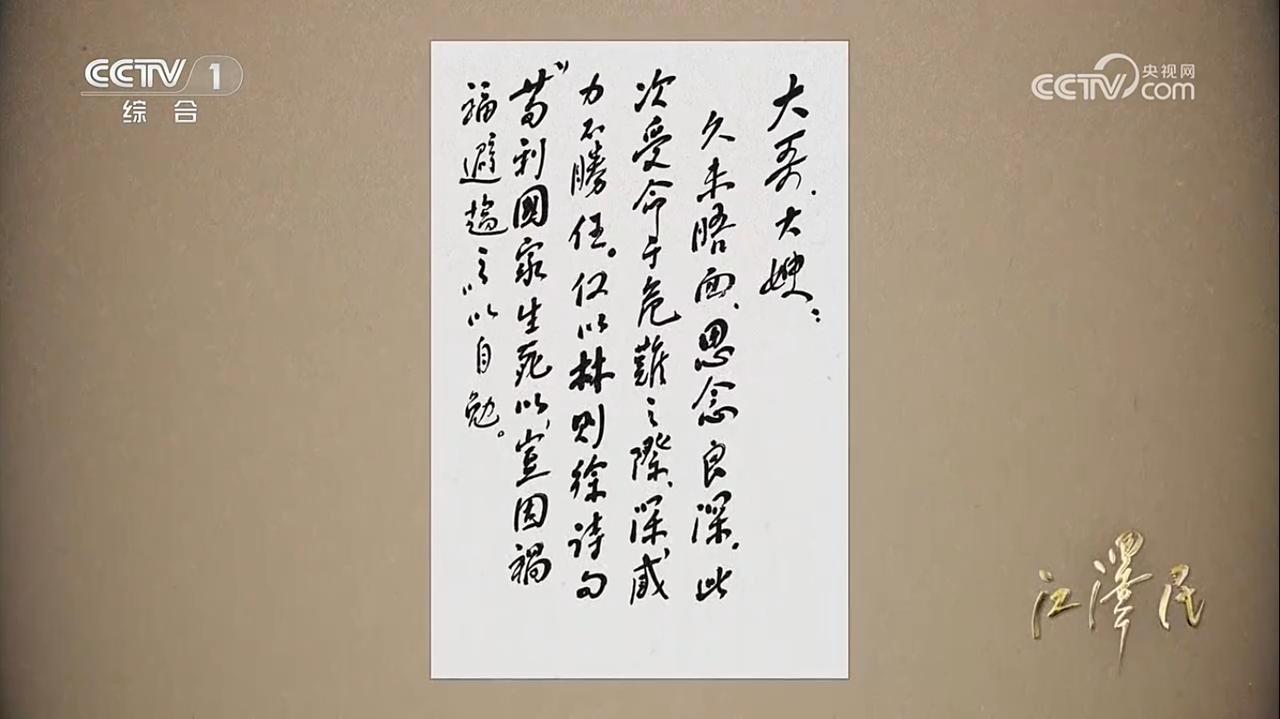 CCTV 1
综合
CCTV 央视网
com
大哥、大嫂：
久未晤面、思念良深，此
次受命于危難之際，深感
力不勝任。仅以林则徐诗句
“苟利國家生死以，豈因禍
福避趨之”以自勉。
江澤民